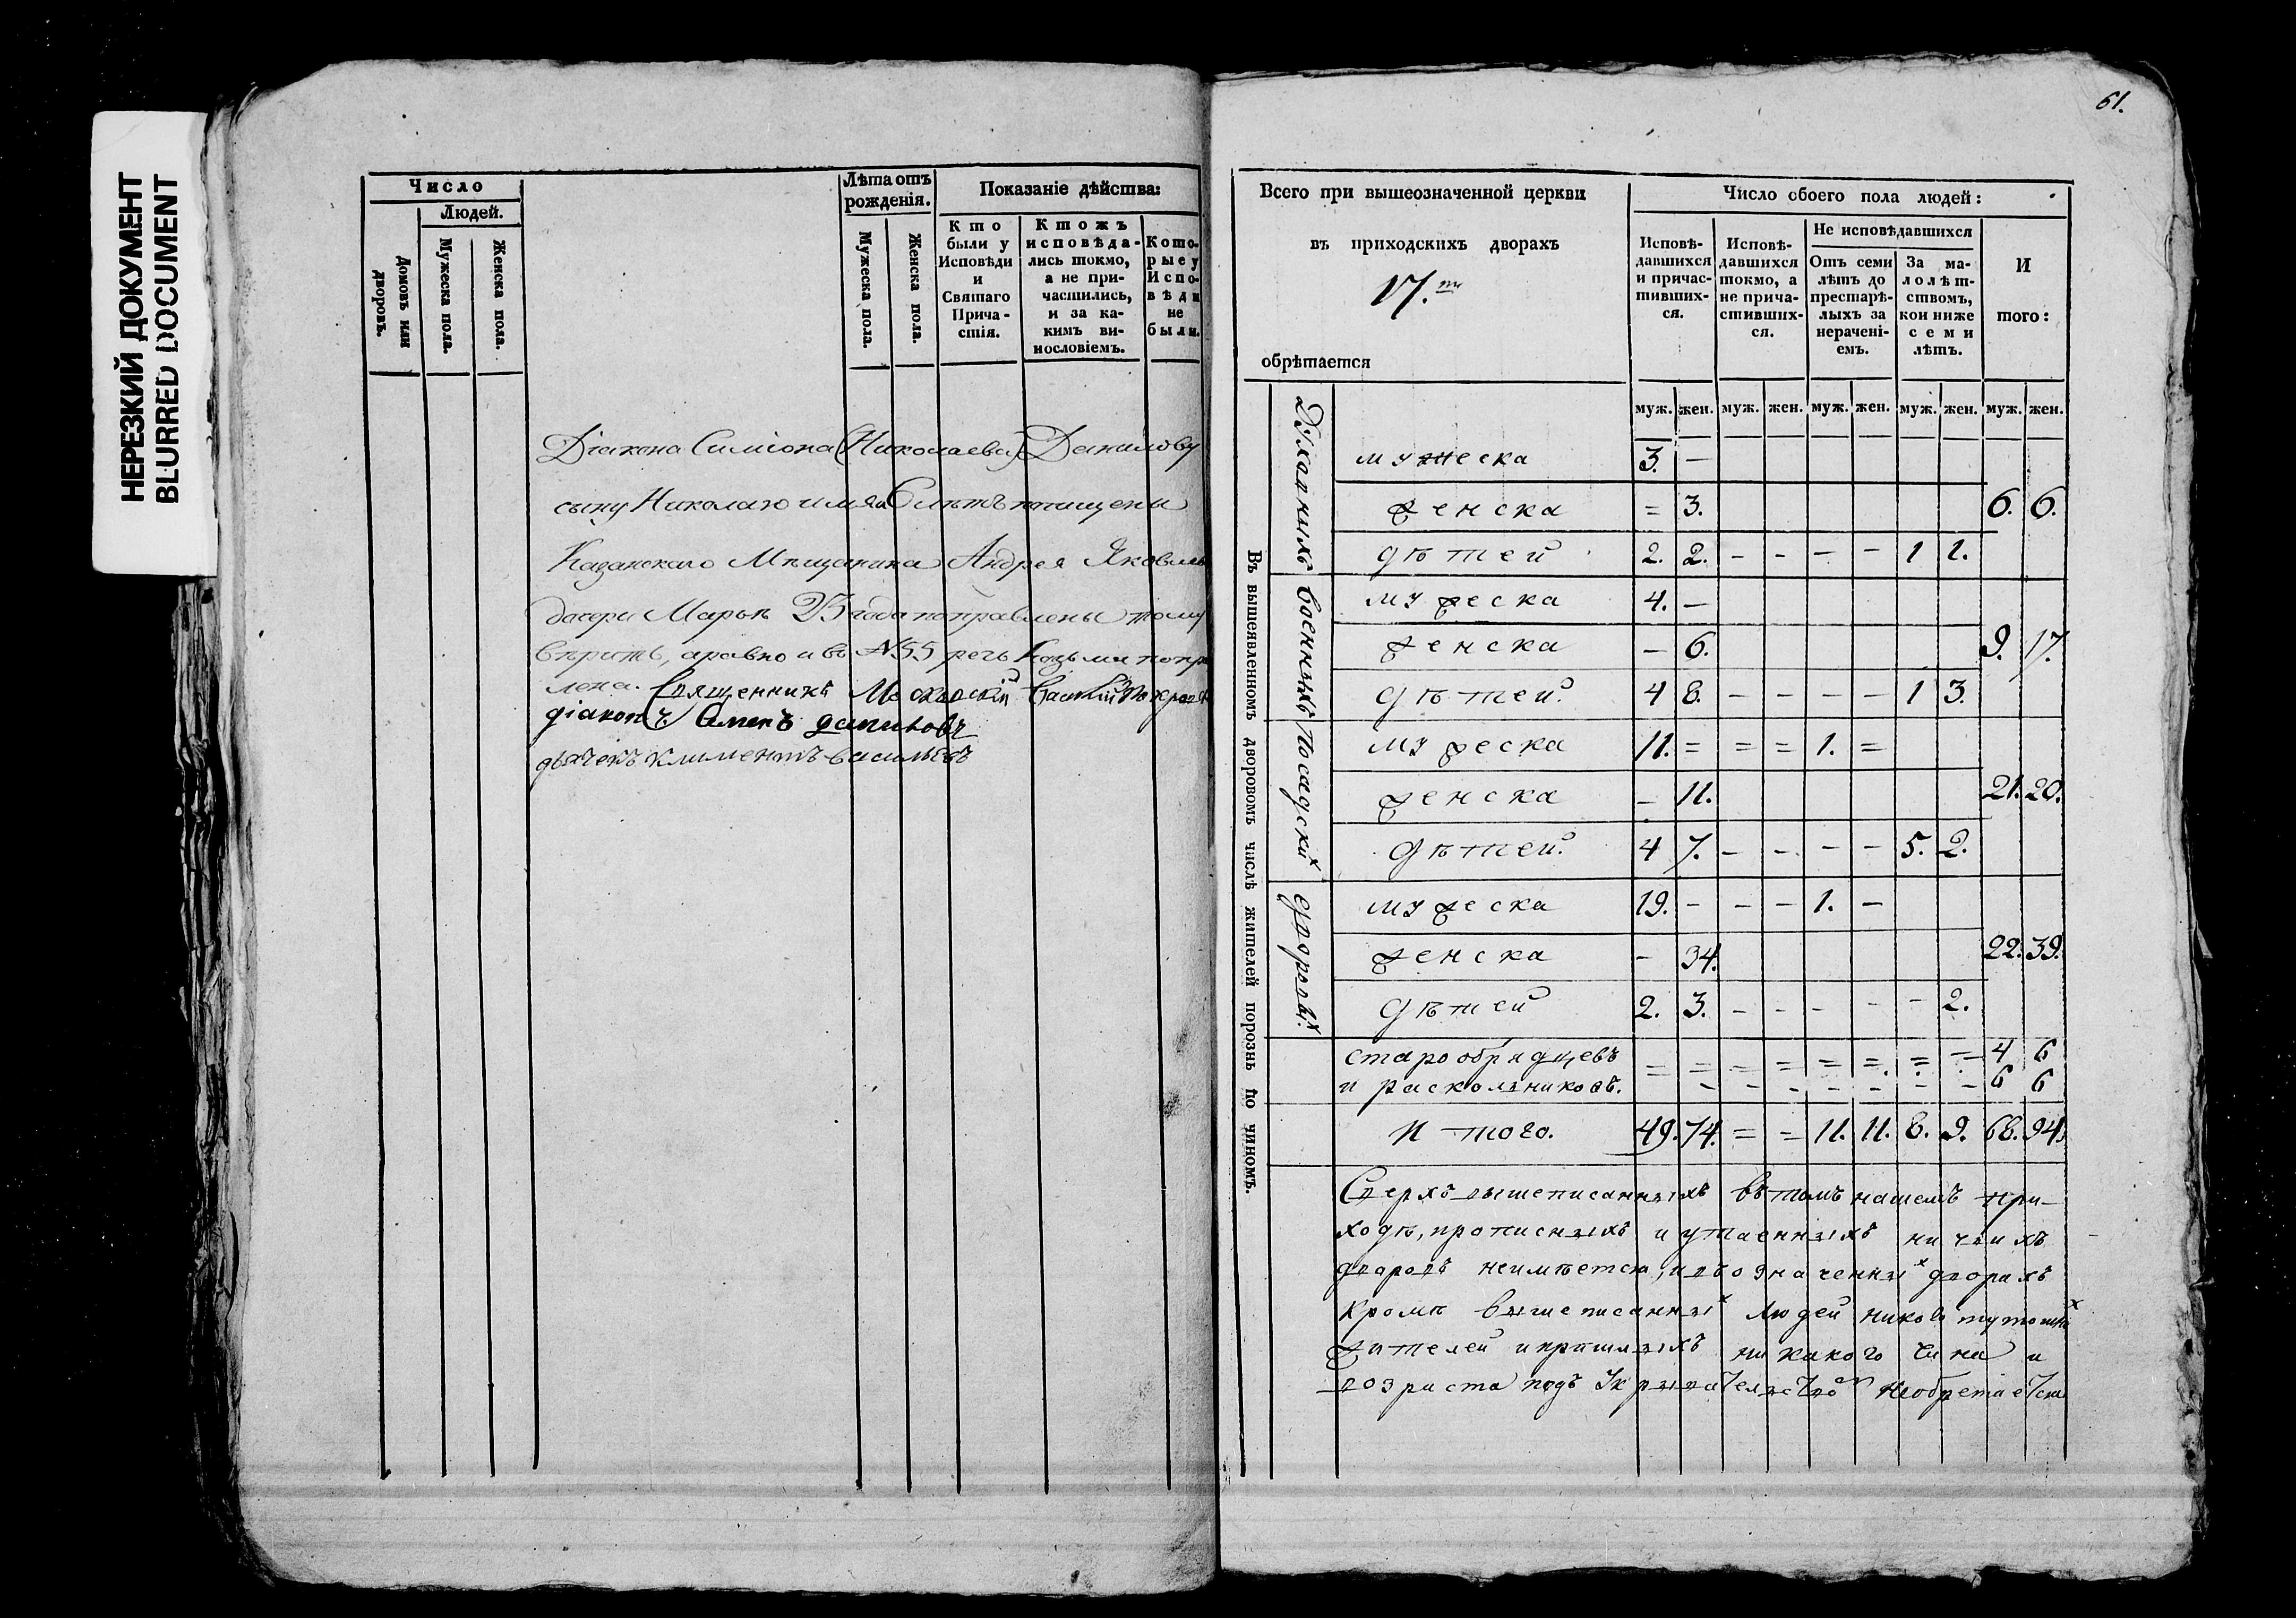 НЕРЕЗКИЙ ДОКУМЕНТ
BLURRED DOCUMENT
Число
Людей.
Домовъ или дворовъ.
Мужеска пола.
Женска пола.
Лѣта отъ рожденія.
Мужеска пола.
Женска пола.
Показаніе дѣйства:
Кто были у Исповѣди и Святаго Причастія.
Ктожъ исповѣдались токмо, а не причастились, и за какимъ винословіемъ.
Которые у Исповѣди не были.
Діакона Симіона (Николаева) Данилову
сыну Николаю имя и 6 лѣтъ
Казанскаго Мѣщанина Андрея Яковлева
дочери Марьѣ 23 года поправлены тому
вѣрить, а равно и въ №55 речь
Священникъ
діаконъ Симеонъ даниловъ
дьячекъ климентъ васильевъ
61.
Всего при вышеозначенной церкви
въ приходскихъ дворахъ
17.ти
обрѣтается
Число обоего пола людей:
Исповѣдавшихся и причастившихся.
Исповѣдавшихся токмо, а не причастившихся.
Не исповѣдавшихся
Отъ семи лѣтъ до престарѣлыхъ за нераченіемъ.
За малолѣтствомъ, кои ниже семи лѣтъ.
И того:
муж. жен. муж. жен. муж. жен. муж. жен. муж. жен.
Въ вышеявленномъ дворовомъ числѣ жителей порознь по чиномъ.
Духовныхъ
мужеска 3. –
женска = 3. 6. 6.
дѣтей 2. 2. – – – – 1 1.
военныхъ
мужеска 4. –
женска – 6. 9. 17.
дѣтей. 4 8. – – – – 1 3.
Посадскихъ
мужеска 11. = = = 1. =
женска – 11. 21. 20.
дѣтей. 4 7. – – – – 5. 2.
дворовыхъ
мужеска 19. – – – 1. –
женска – 34. 22. 39.
дѣтей 2. 3. – – – – – 2.
старообрядцевъ = = = = = = = – 4 6
и раскольниковъ. – – – – – – – 6 6
И того. 49. 74. = = 11. 11. 8. 9. 68. 94.
Сверхъ вышеписанныхъ въ томъ нашемъ при-
ходѣ, прописныхъ и утаенныхъ ни чьихъ
дворовъ неимѣется, и въ означенныхъ дворахъ
кромѣ вышеписанныхъ людей никого тутошнихъ
жителей и пришлыхъ ни какого чина и
возраста подъ укрывательствомъ необретается